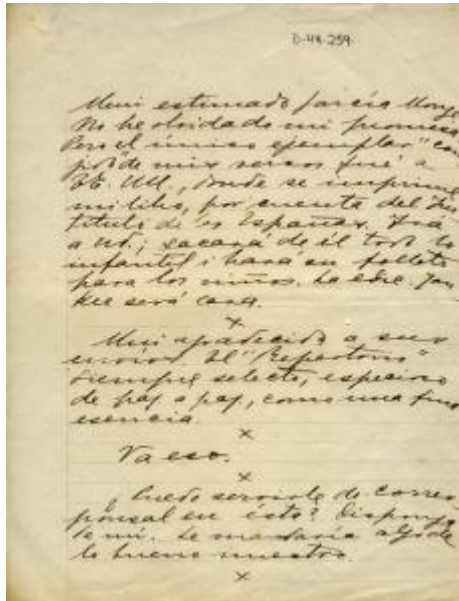 D-4X-259
Mui estimado García Monge
No he olvidado mi promesa
Pero el único ejemplar "com
pto" de mis versos fué a
EE. UU., donde se imprime
mi libro, por cuenta del Ins
tituto de las Españas. Irá
a Ud.; sacará de él todo lo
infantil i hará un folleto
para los niños. La edic. Yan
kee será cara.
x
Mui agradecido a sus
envíos. El "Repertorio"
siempre selecto, especioso
de pag a pag, como una fina
esencia.
x
Va eso.
x
¿Puedo servirle de corres
ponsal en ésta? Disponga
de mí. Le mandaría algo de
lo bueno nuestro.
x